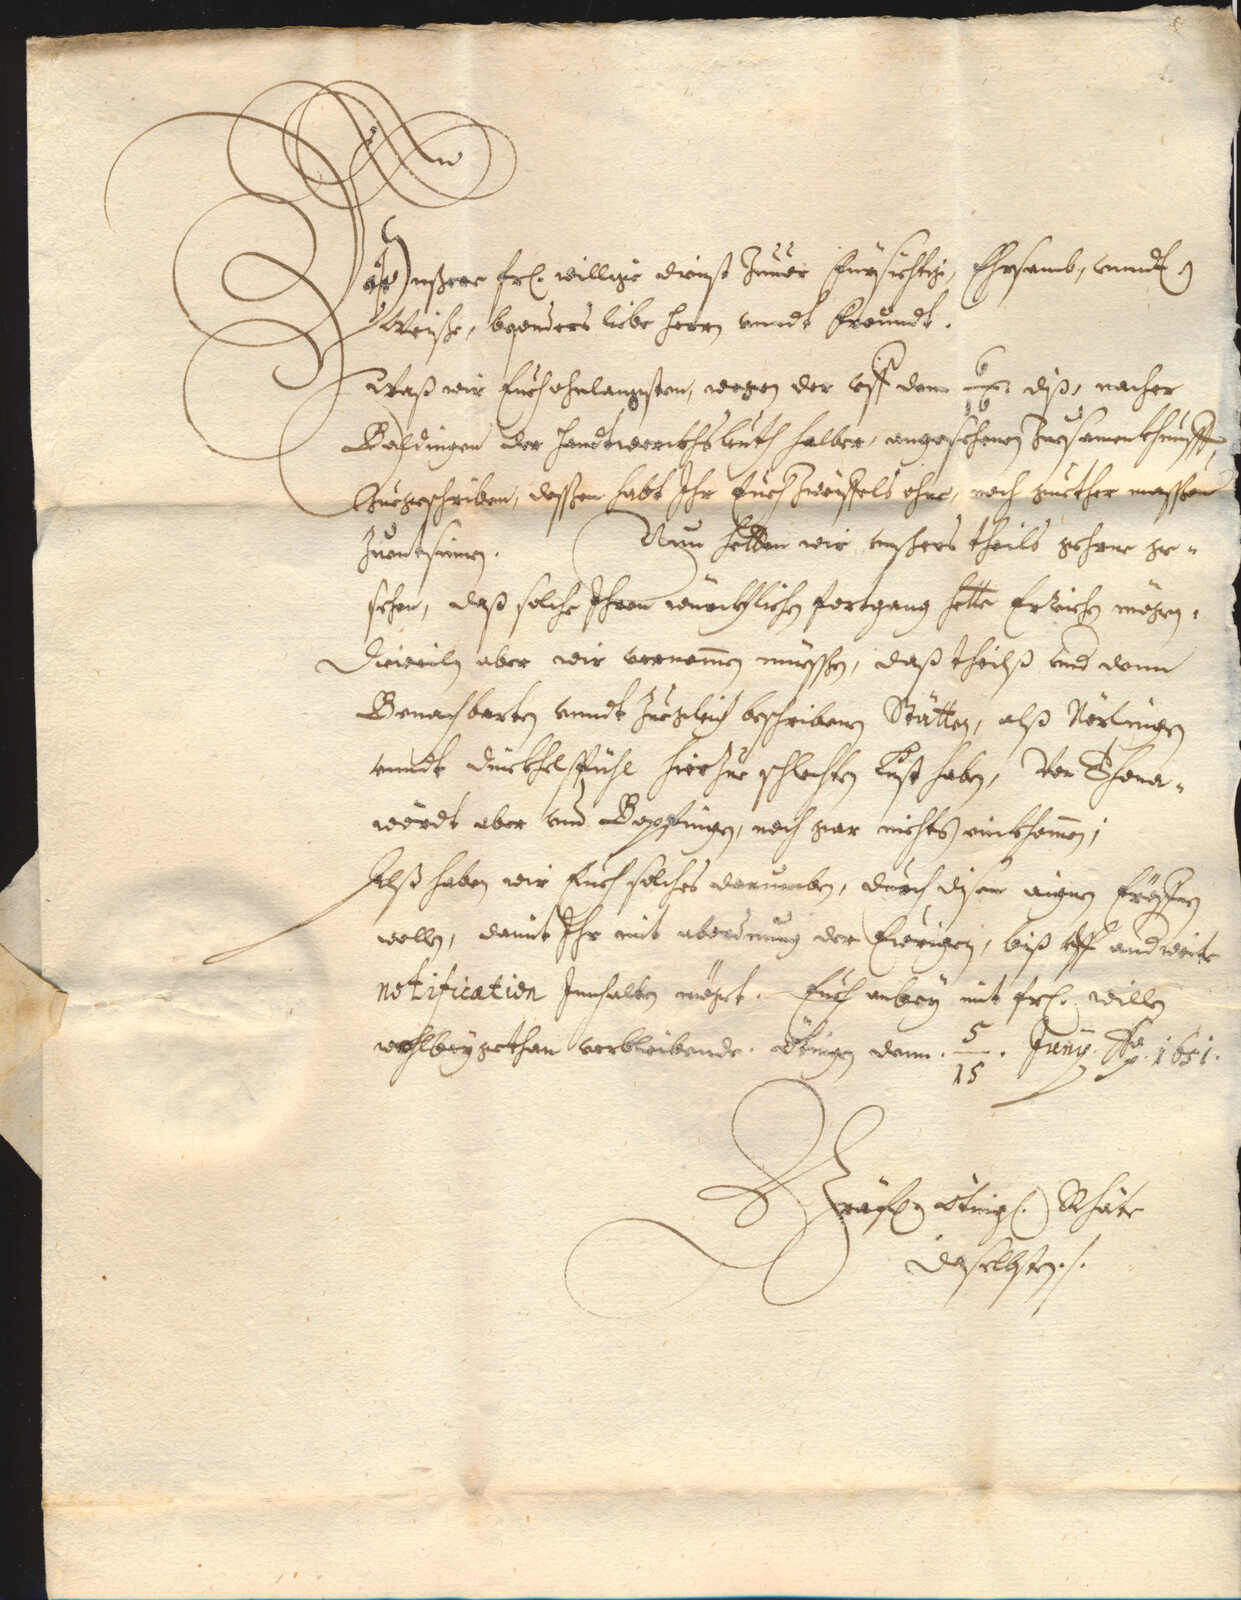 Unßere frl. willige dienst Zuuor Fürsichtige, Ehrsamb, vnndt
Weiße, besonders liebe Herrn vnndt Freundt.
Waß wir Euch ohnlangsten, wegen der vff den 6/16 diß, nacher
Baldingen der Handtwerckhsleuth halber, angesehenen Zusamenkhunfft,
Zuegeschriben, dessen habt Ihr Euch Zweiffels ohne, noch guether massen
Zuentsinnen. Nun hetten wir vnsers theils gehrne ge-
sehen, daß solche Ihren würckhlichen fortgang hette Erreichen mögen.
Dieweiln aber wir vernommen müessen, daß theilß vnd denn
Benachbarten vnndt Zuegleich beschribenen Stätten, alß Nörlingen
vnndt Dünckhelspühl hierZue schlechten Lust haben, Von Thona-
wördt aber vnd Bopfingen, noch gar nichts einkhommen;
Alß haben wir Euch solches darumben, durch disen aignen Eröffnen
wollen, damit Ihr mit abordnung der Eurigen, biß vff anderweite
notification Innhalten möget. Euch anbey mit frl. willen
wohlbeygethan verbleibende. Ötingen denn 5/15. Junij. Ao. 1651.
Gräfl. Öting. Rhäte
daselbsten.